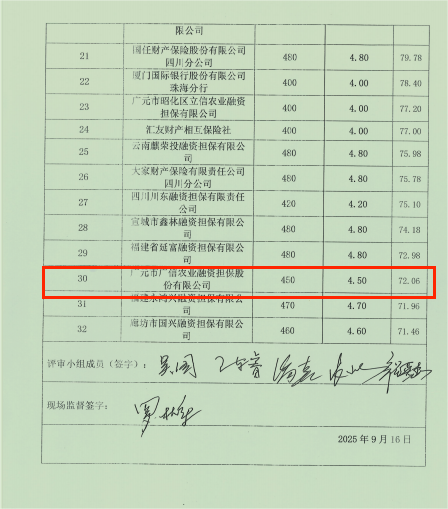 限公司
21 国任财产保险股份有限公司 480 4.80 79.78
四川分公司
22 厦门国际银行股份有限公司 400 4.00 78.40
珠海分行
23 广元市昭化区立信农业融资 400 4.00 77.20
担保有限公司
24 汇友财产相互保险社 400 4.00 77.00
25 云南麒荣投融资担保有限公 480 4.80 75.98
司
26 大家财产保险有限责任公司 480 4.80 75.98
四川分公司
27 四川川东融资担保有限责任 420 4.20 75.10
公司
28 宣城市鑫林融资担保有限公 480 4.80 74.18
司
29 福建省延富融资担保有限公 480 4.80 72.98
司
30 广元市广信农业融资担保股 450 4.50 72.06
份有限公司
31 福建永鸿兴融资担保有限公 470 4.70 71.96
司
32 廊坊市国兴融资担保有限公 460 4.60 71.46
司
评审小组成员（签字）：
现场监督签字：
2025 年 9 月 16 日